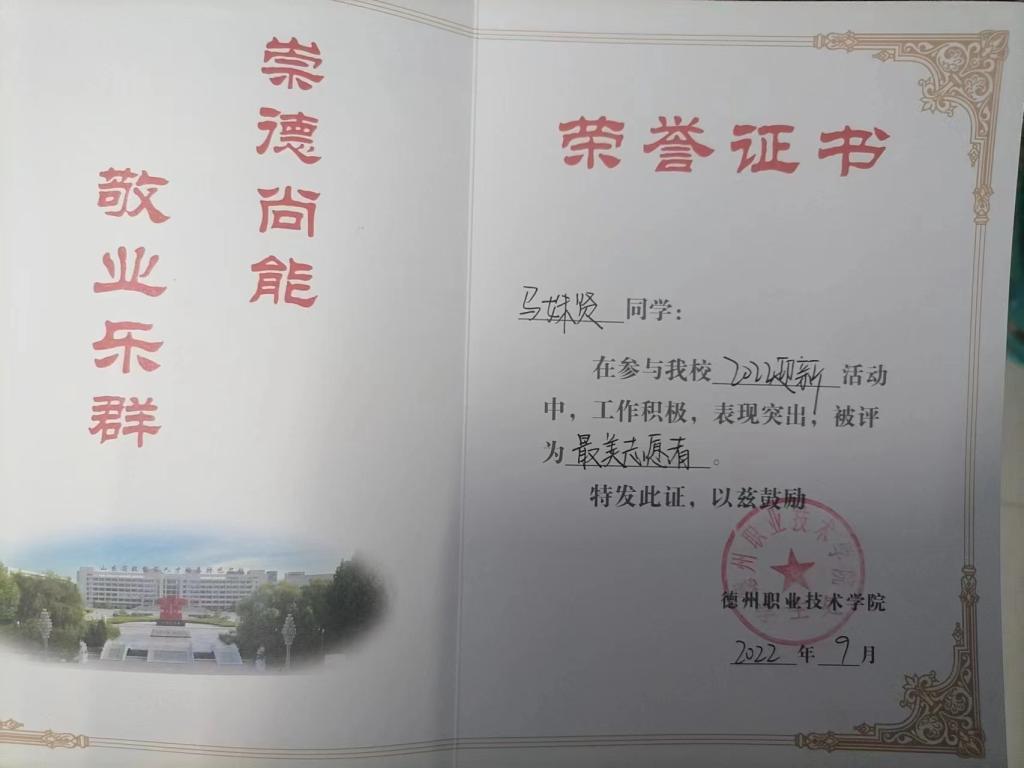 崇德尚能
敬业乐群
荣誉证书
马姝贤同学：
在参与我校2022迎新活动
中，工作积极，表现突出，被评
为最美志愿者。
特发此证，以兹鼓励
德州职业技术学院
德州职业技术学院
2022年9月